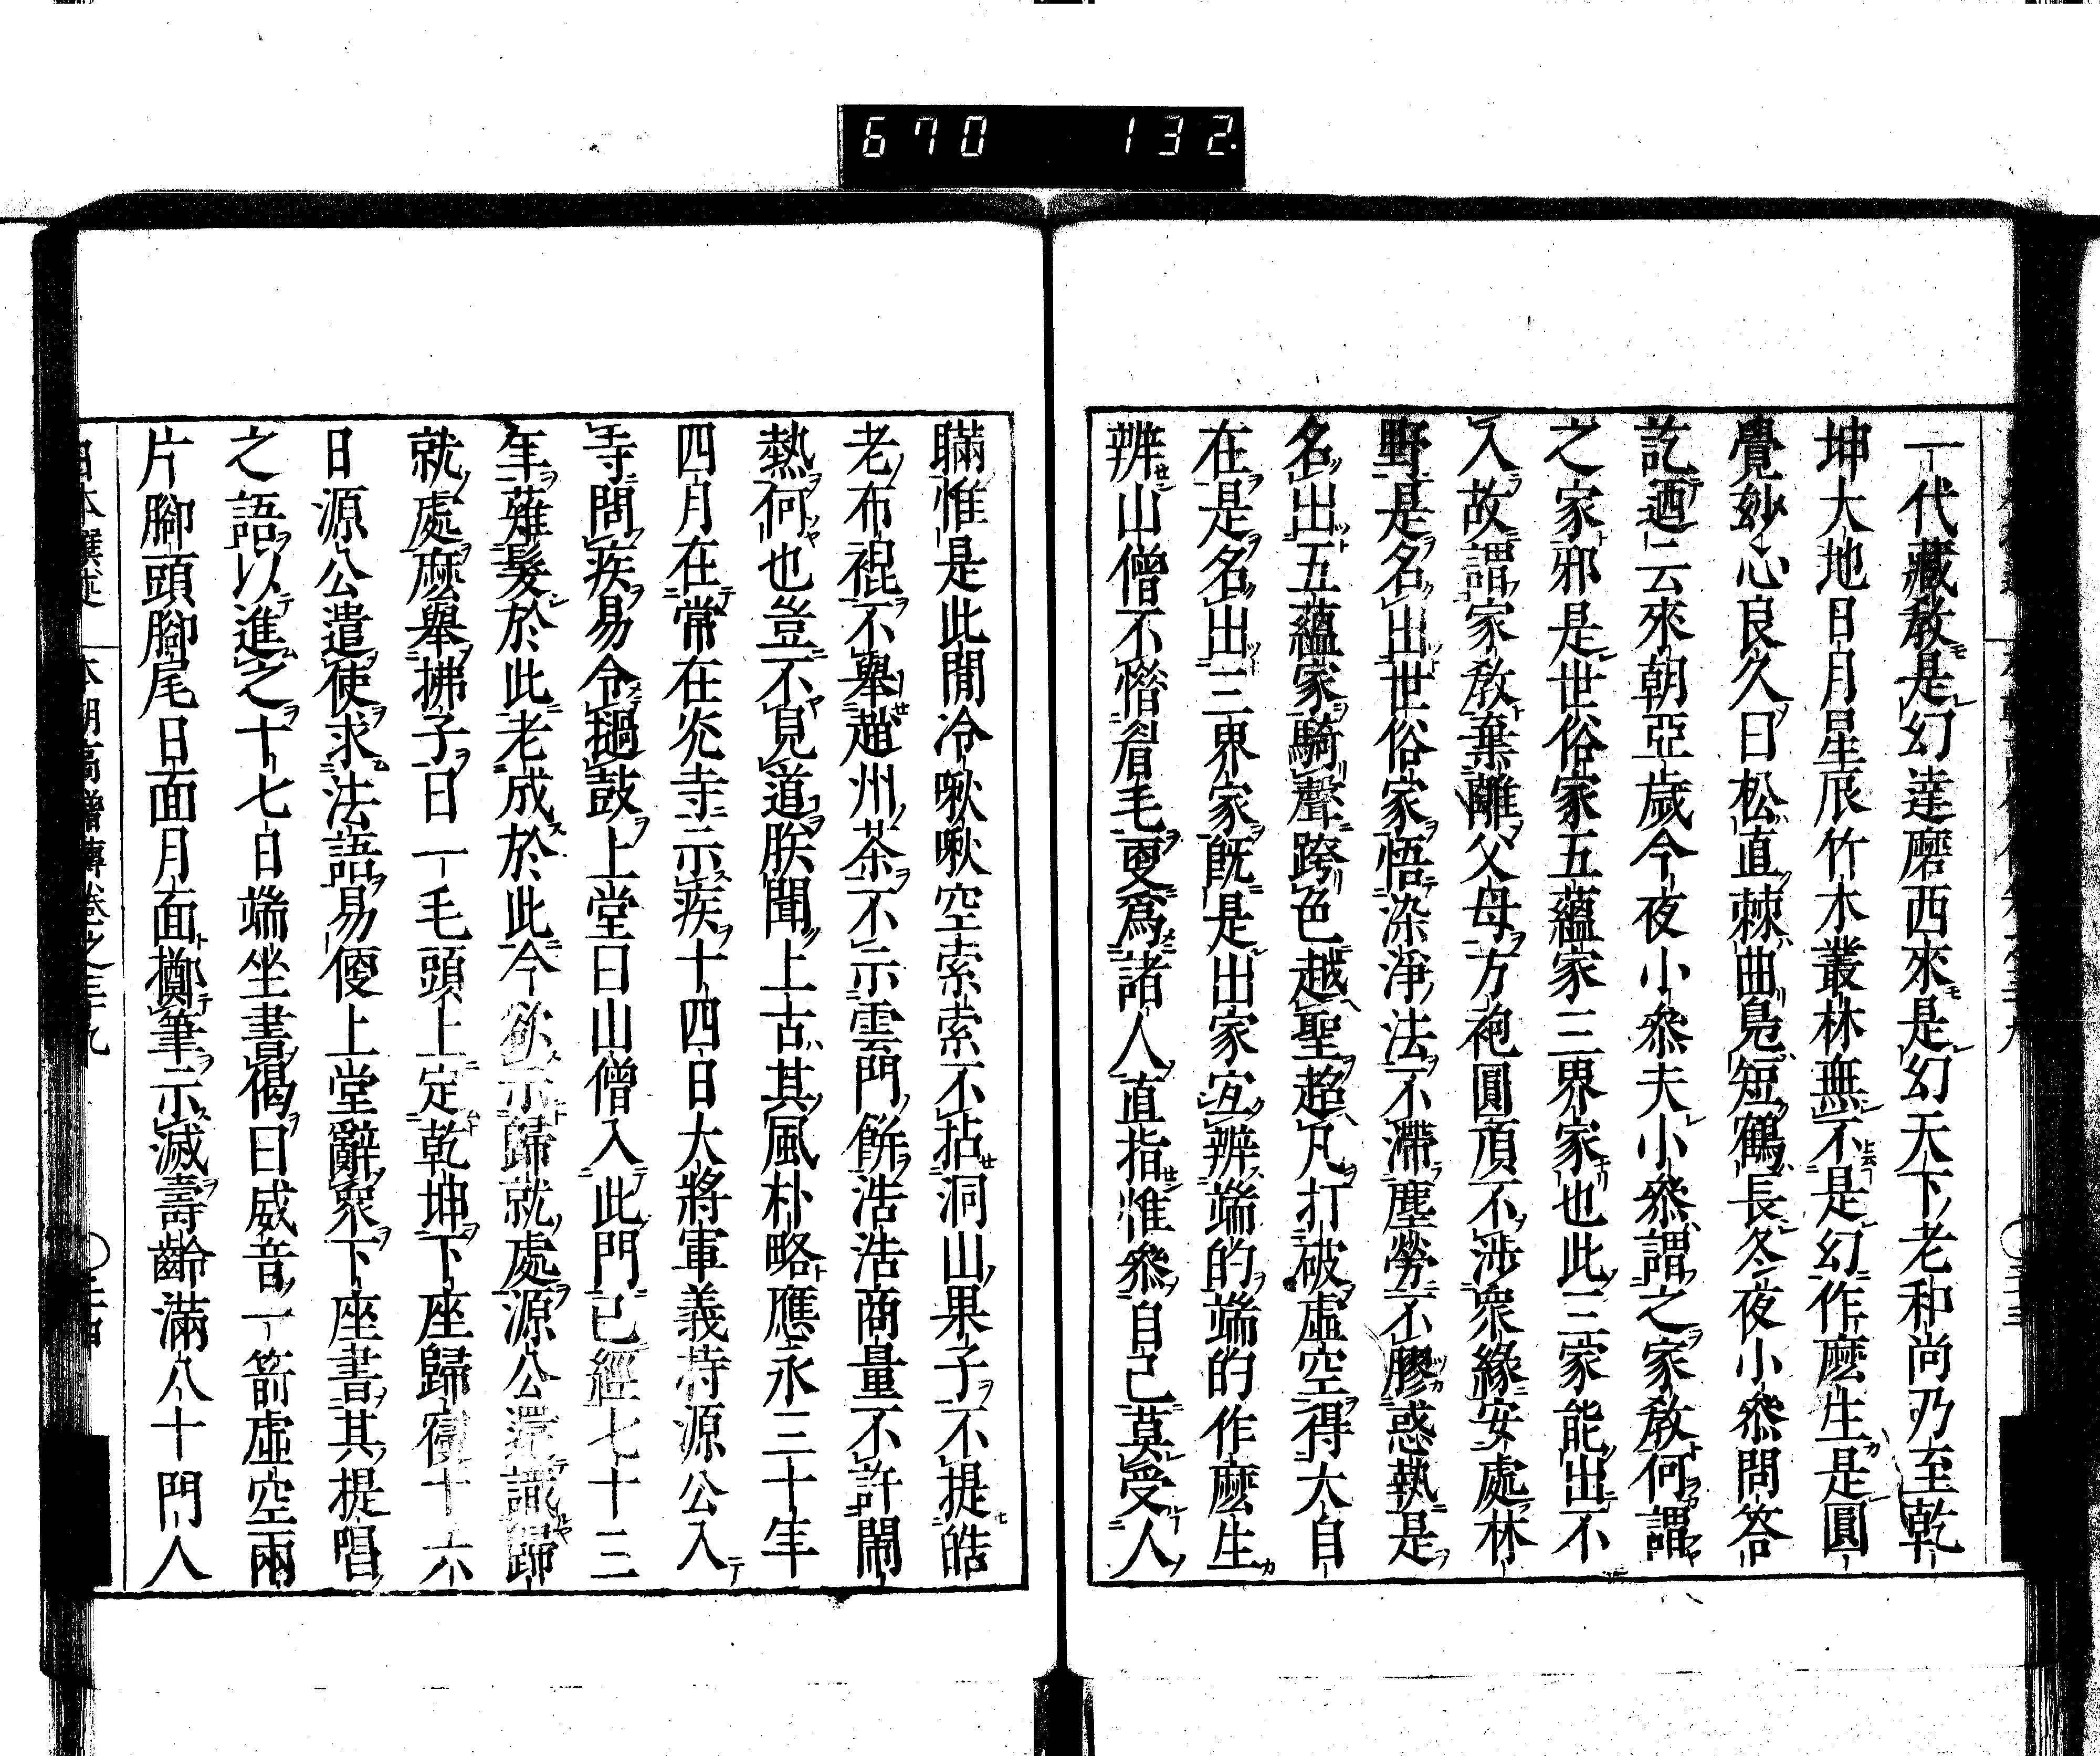 670 132
一代藏教是幻達磨西來是幻天下老和尚乃至乾
坤大地日月星辰竹木叢林無不是幻作麼生是圓
覺妙心良久曰松直棘曲鳧短鶴長冬夜小參問答
訖迺云來朝亞歲今夜小參夫小參謂之家教何謂
之家邪是世俗家五蘊家三界家也此三家能出不
入故謂家教棄離父母方袍圓頂不涉衆緣安處林
野是名出世俗家悟染淨法不滯塵勞不膠惑執是
名出五蘊家騎聲跨色越聖超凡打破虛空得大自
在是名出三界家既是出家宜辨端的端的作麼生
辨山僧不惜眉毛更為諸人直指惟參自己莫受人
瞞惟是此間冷啾啾空索索不拈洞山果子不提皓
老布裩不舉趙州茶不示雲門餅浩浩商量不許鬧
熱何也豈不見道朕聞上古其風朴略應永三十年
四月在常在光寺示疾十四日大將軍義持源公入
寺問疾易令撾鼓上堂曰山僧入此門已經七十三
年薙髮於此老成於此今欲示歸就處源公還識歸
就處麼舉拂子曰一毛頭上定乾坤下座歸寢十六
日源公遣使求法語易便上堂辭衆下座書其提唱
之語以進之十七日端坐書偈曰威音一箭虛空兩
片腳頭腳尾日面月面擲筆示滅壽齡滿八十門人
日本撰述 本朝高僧傳卷之三十九 〇二十四